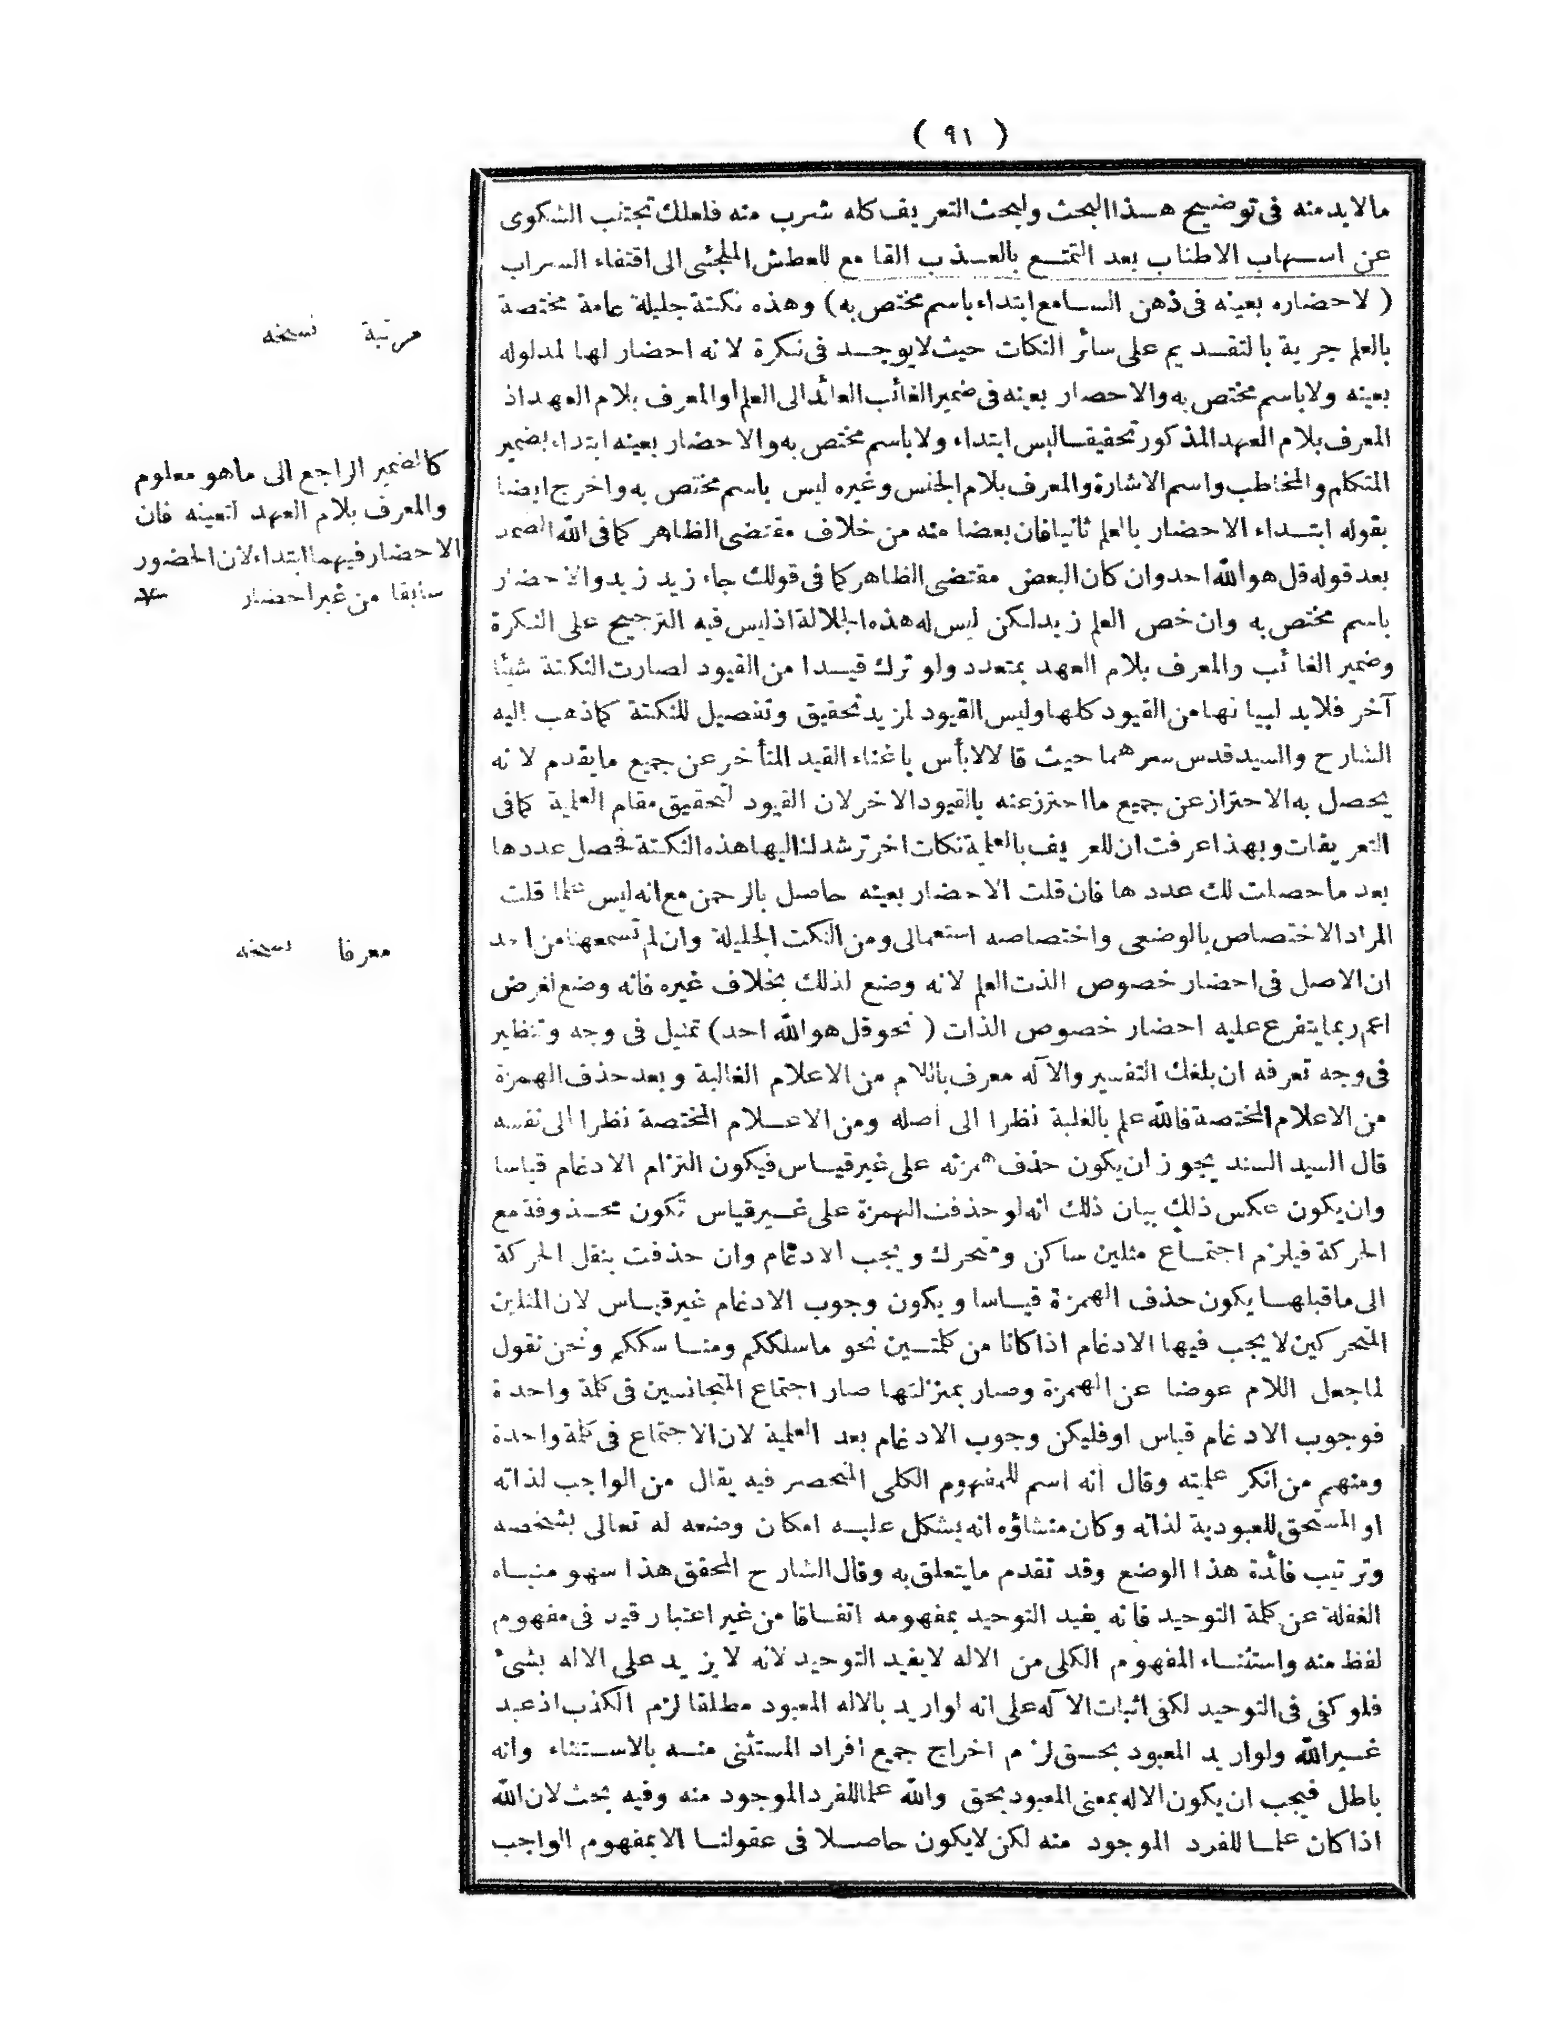 ( ٩١ )
مالابد منه فى توضيح هذا البحث ولبحث التعريف كله شرب منه فلعلك تجتنب الشكوى
عن اسهاب الاطناب بعد التمتع بالعذب القامع للعطش الملجئى الى اقتفاء السراب
( لاحضاره بعينه فى ذهن السامع ابتداء باسم مختص به ) وهذه نكتة جليلة عامة مختصة
بالعلم جرية بالتقديم على سائر النكات حيث لايوجد فى نكرة لانه احضار لها لمدلوله
بعينه ولاباسم مختص به والاحصار بعينه فى ضمير الغائب العائد الى العلم او المعرف بلام العهد اذ
المعرف بلام العهد المذكور تحقيقا ليس ابتداء ولاباسم مختص به والاحضار بعينه ابتداء بضمير
المتكلم والمخاطب واسم الاشارة والمعرف بلام الجنس وغيره ليس باسم مختص به واخرج ايضا
بقوله ابتداء الاحضار بالعلم ثانيا فان بعضا منه من خلاف مقتضى الظاهر كما فى الله الصمد
بعد قوله قل هو الله احد وان كان البعض مقتضى الظاهر كما فى قولك جاء زيد زيد والاحضار
باسم مختص به وان خص العلم زيد لكن ليس له هذه الجلالة اذ ليس فيه الترجيح على النكرة
وضمير الغائب والمعرف بلام العهد بمتعدد ولو ترك قيدا من القيود لصارت النكتة شيئا
آخر فلابد لبيانها من القيود كلها وليس القيود لمزيد تحقيق وتفصيل للنكتة كما ذهب اليه
الشارح والسيد قدس سرهما حيث قالا لابأس باغناء القيد المتأخر عن جميع مايقدم لانه
يحصل به الاحتراز عن جميع ما احترز عنه بالقيود الاخر لان القيود لتحقيق مقام العلمية كما فى
التعريفات وبهذا عرفت ان للعريف بالعلمية نكات اخر ترشدك اليها هذه النكتة فحصل عددها
بعد ما حصلت لك عددها فان قلت الاحضار بعينه حاصل بالرحمن مع انه ليس علما قلت
المراد الاختصاص بالوضعى واختصاصه استعمالى ومن النكت الجليلة وان لم تسمعها من احد
ان الاصل فى احضار خصوص الذت العلم لانه وضع لذلك بخلاف غيره فانه وضع لغرض
اعم ربما يتفرع عليه احضار خصوص الذات ( نحو قل هو الله احد ) تمثيل فى وجه وتنظير
فى وجه تعرفه ان بلغك التفسير والاله معرف باللام من الاعلام الغالبة وبعد حذف الهمزة
من الاعلام المختصة فالله علم بالغلبة نظرا الى اصله ومن الاعلام المختصة نظرا الى نفسه
قال السيد السند يجوز ان يكون حذف همزته على غير قياس فيكون التزام الادغام قياسا
وان يكون عكس ذلك بيان ذلك انه لو حذفت الهمزة على غير قياس تكون محذوفة مع
الحركة فيلزم اجتماع مثلين ساكن ومتحرك ويجب الادغام وان حذفت بنقل الحركة
الى ماقبلها يكون حذف الهمزة قياسا ويكون وجوب الادغام غير قياس لان المثلين
المتحركين لايجب فيها الادغام اذا كانا من كلمتين نحو ماسلككم ومناسككم ونحن نقول
لما جعل اللام عوضا عن الهمزة وصار بمنزلتها صار اجتماع المتجانسين فى كلمة واحدة
فوجوب الادغام قياس او فليكن وجوب الادغام بعد العلمية لان الاجتماع فى كلمة واحدة
ومنهم من انكر علميته وقال انه اسم للمفهوم الكلى المنحصر فيه يقال من الواجب لذاته
او المستحق للعبودية لذاته وكان منشاؤه انه يشكل عليه امكان وضعه له تعالى بشخصه
وترتيب فائدة هذا الوضع وقد تقدم مايتعلق به وقال الشارح المحقق هذا سهو منباه
الغفلة عن كلمة التوحيد فانه يفيد التوحيد بمفهومه اتفاقا من غير اعتبار قيد فى مفهوم
لفظ منه واستثناء المفهوم الكلى من الاله لايفيد التوحيد لانه لايزيد على الاله بشئ
فلو كفى فى التوحيد لكفى اثبات الاله على انه لو اريد بالاله المعبود مطلقا لزم الكذب اذ عبد
غير الله ولو اريد المعبود بحق لزم اخراج جميع افراد المستثنى منه بالاستثناء وانه
باطل فيجب ان يكون الاله بمعنى المعبود بحق والله علما للفرد الموجود منه وفيه بحث لان الله
اذا كان علما للفرد الموجود منه لكن لايكون حاصلا فى عقولنا الا بمفهوم الواجب
مرتبة نسخه
كالضمير الراجع الى ماهو معلوم
والمعرف بلام العهد لتعينه فان
الاحضار فيهما ابتداء لان الحضور
سابقا من غير احضار
معرفا نسخه